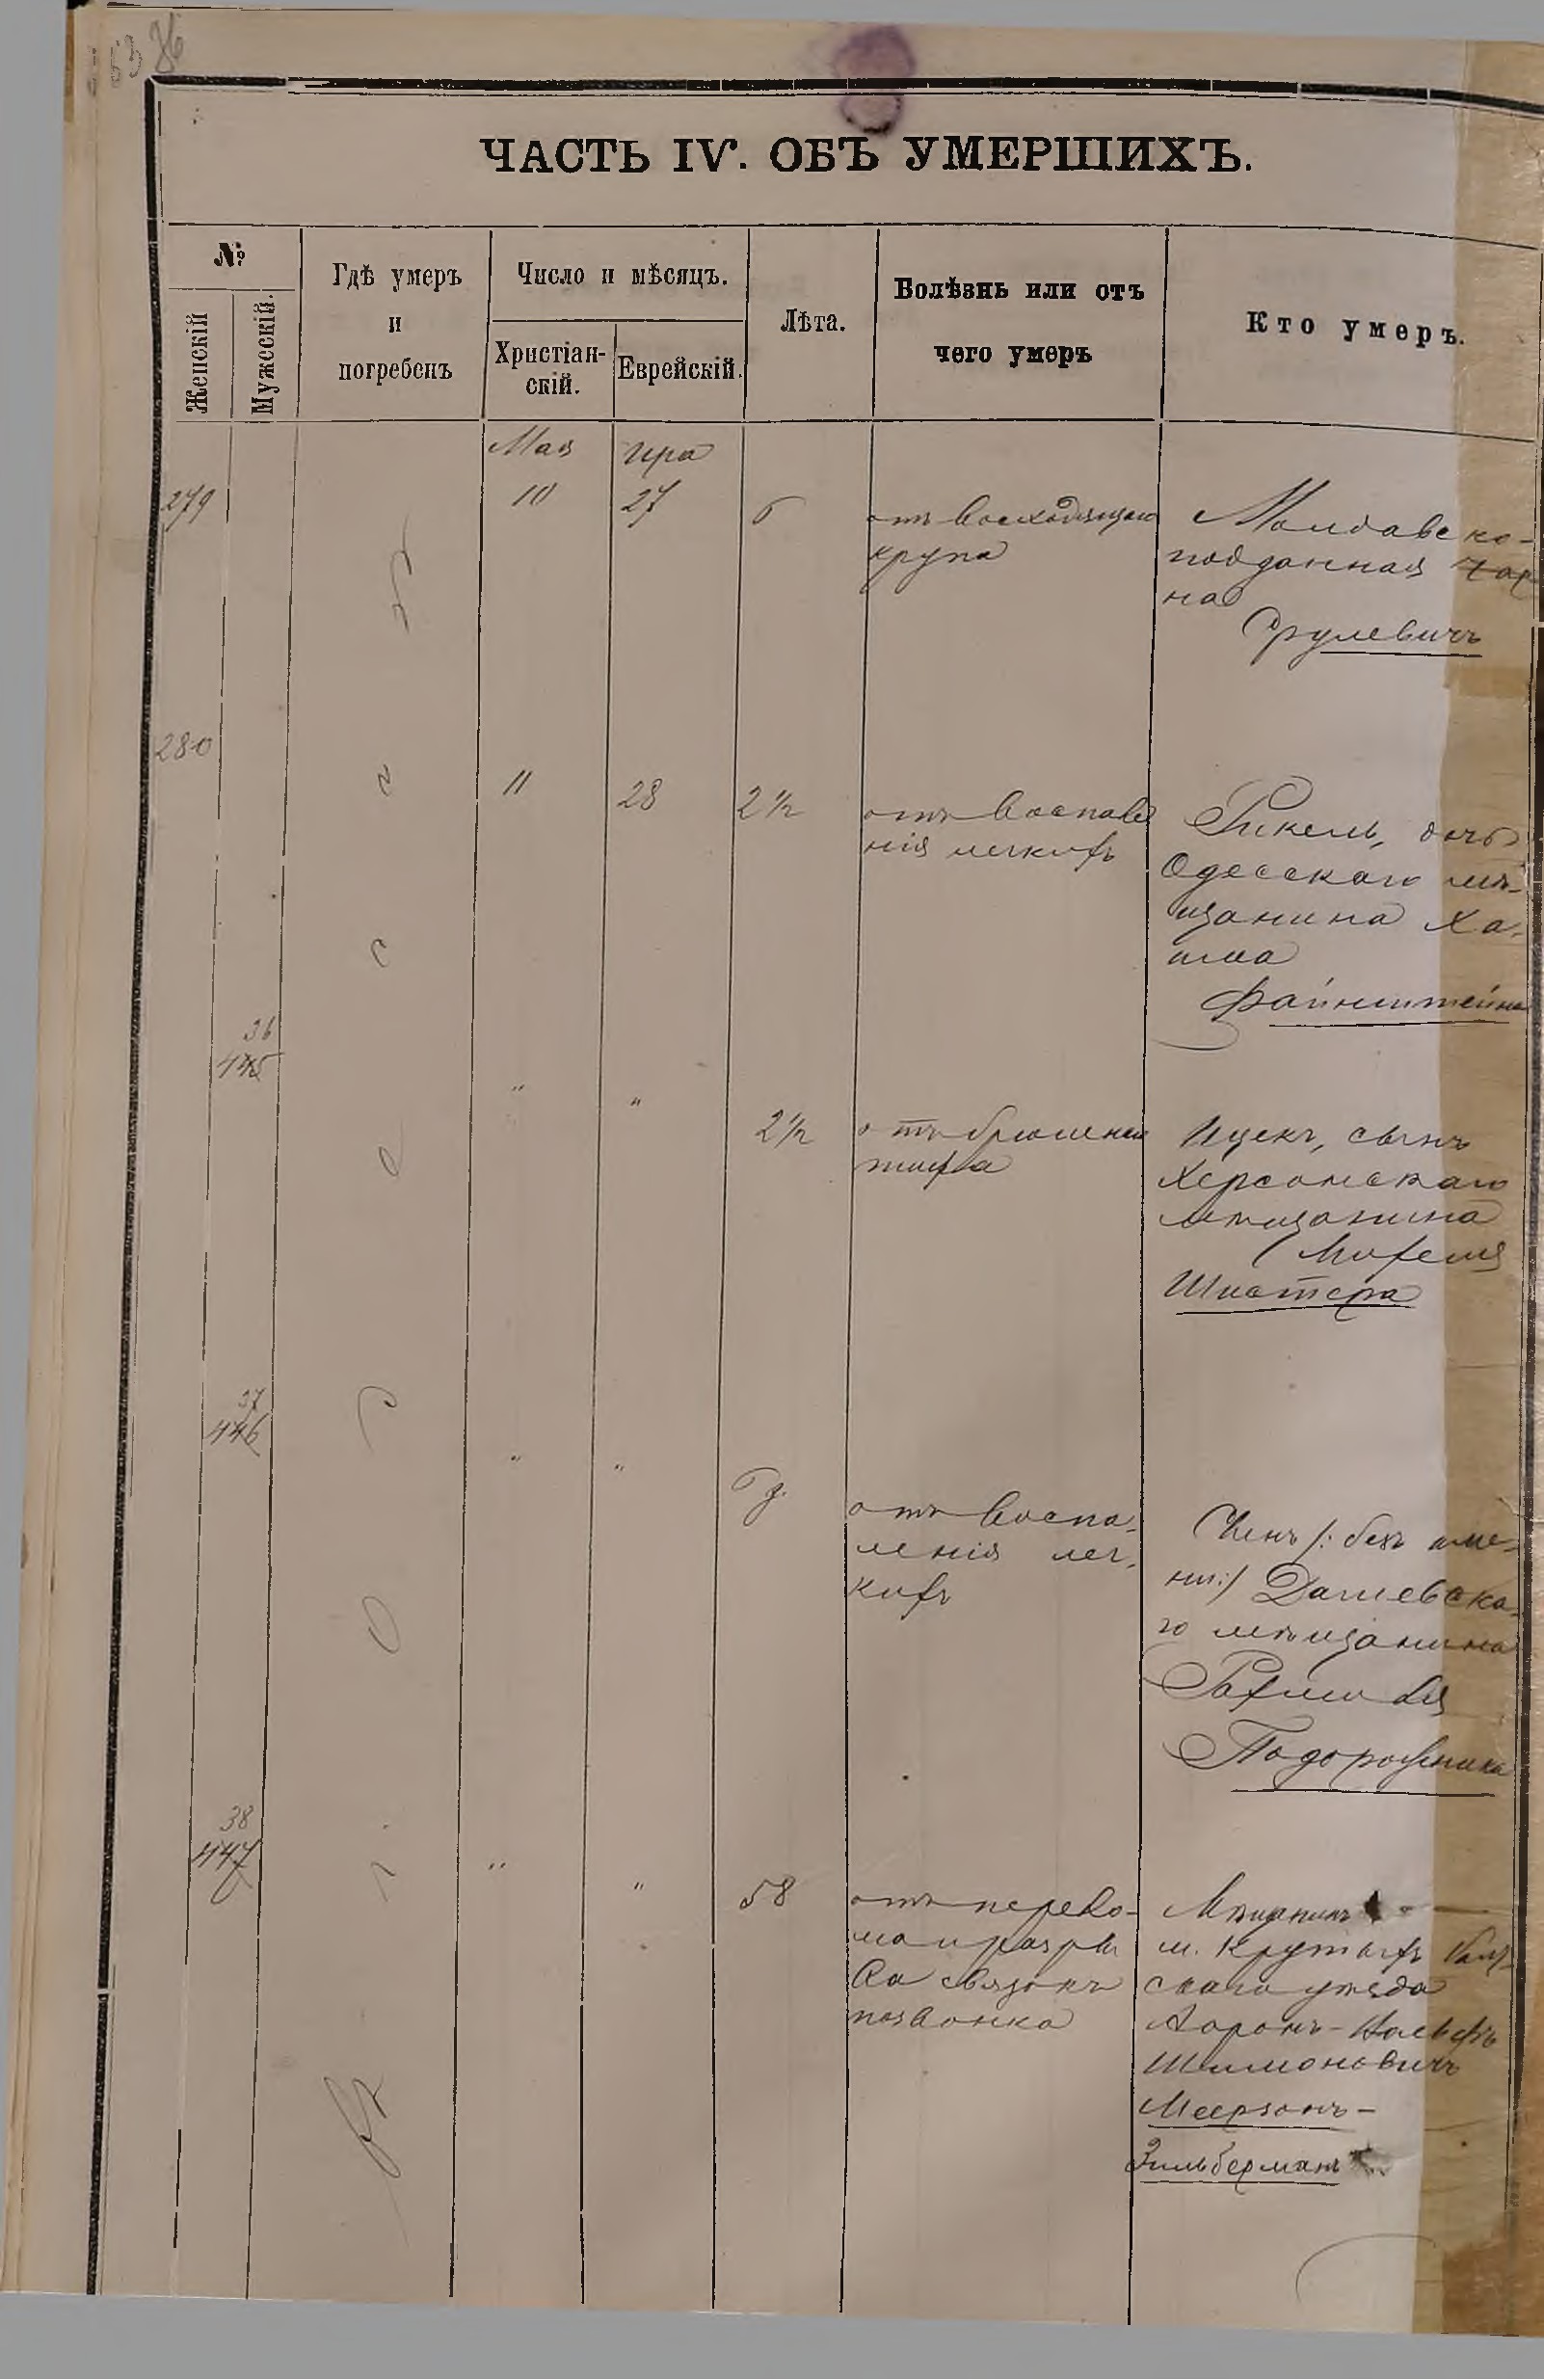 36
ЧАСТЬ IV. ОБЪ УМЕРШИХЪ.
№
Женскій
Мужескій.
Гдѣ умеръ
и
погребенъ
Число и мѣсяцъ.
Христіан-
скій.
Еврейскій.
Лѣта.
Болѣзнь или отъ
чего умеръ
Кто умеръ.
Мая
Ира
279
10
27
6
отъ восходящаго
крупа
Молдавско-
подданная Чар
на
Срулевичъ
280
11
28
2 ½
отъ воспале
нія легкихъ
Рикель, дочь
Одесскаго мѣ-
щанина Ха-
има
Файнштейна
36
445
"
"
2 ½
отъ брюшнаго
тифа
Ицекъ, сынъ
Херсонскаго
мѣщанина
Михеля
Шистера
37
446
"
"
6 д.
отъ воспа-
ленія лег-
кихъ
Членъ /: безъ име-
ни :/ Дашевска-
го мѣщанина
Подорожника
38
447
"
"
58
отъ перело-
ма и разры
ва связокъ
позвонка
Мѣщанинъ
м. Крутыхъ
скаго уѣзда
Ааронъ-Вольфъ
Шимоновичъ
Меерзонъ-
Зильберманъ